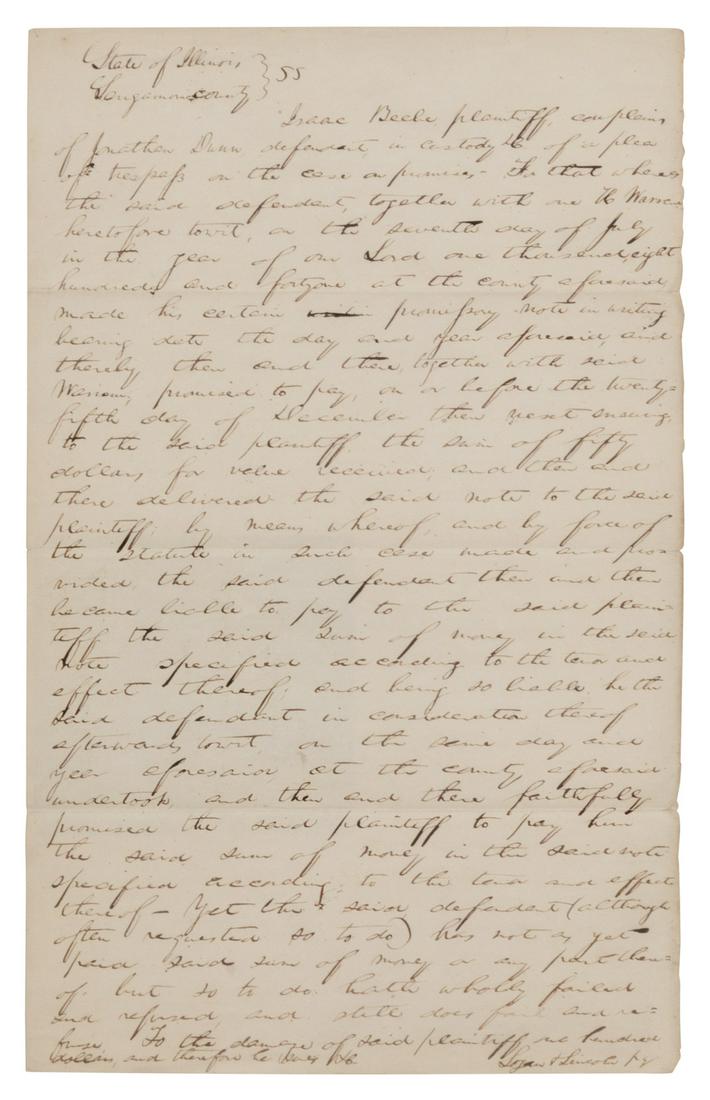 State of Illinois } SS
Sangamon county }
Isaac Beele plaintiff, complains
of Jonathan Dunn defendant in custody &c of a plea
of trespass on the case on promises - For that whereas
the said defendant, together with one
heretofore towit, on the seventh day of July
in the year of our Lord one thousand, eight
hundred and fortyone at the county aforesaid
made his certain promissory note in writing
bearing date the day and year aforesaid, and
thereby then and there, together with said
promised to pay, on or before the twenty=
fifth day of December then next ensuing,
to the said plaintiff, the sum of fifty
dollars for value received, and then and
there delivered the said note to the said
plaintiff; by means whereof, and by force of
the statute in such case made and pro=
vided, the said defendant then and there
became liable to pay to the said plain=
tiff the said sum of money in the said
note specified according to the tenor and
effect thereof; and being so liable he the
said defendant in consideration thereof
afterwards, towit, on the same day and
year aforesaid at the county aforesaid
undertook, and then and there faithfully
promised the said plaintiff to pay him
the said sum of money in the said note
specified according, to the tenor and effect
thereof - Yet the said defendant (although
often requested so to do) has not as yet
paid said sum of money or any part there=
of; but so to do hath wholly failed
and refused, and still does fail and re=
fuse. To the damage of said plaintiff one hundred
dollars, and therefore he sues &c Logan & Lincoln p.q.